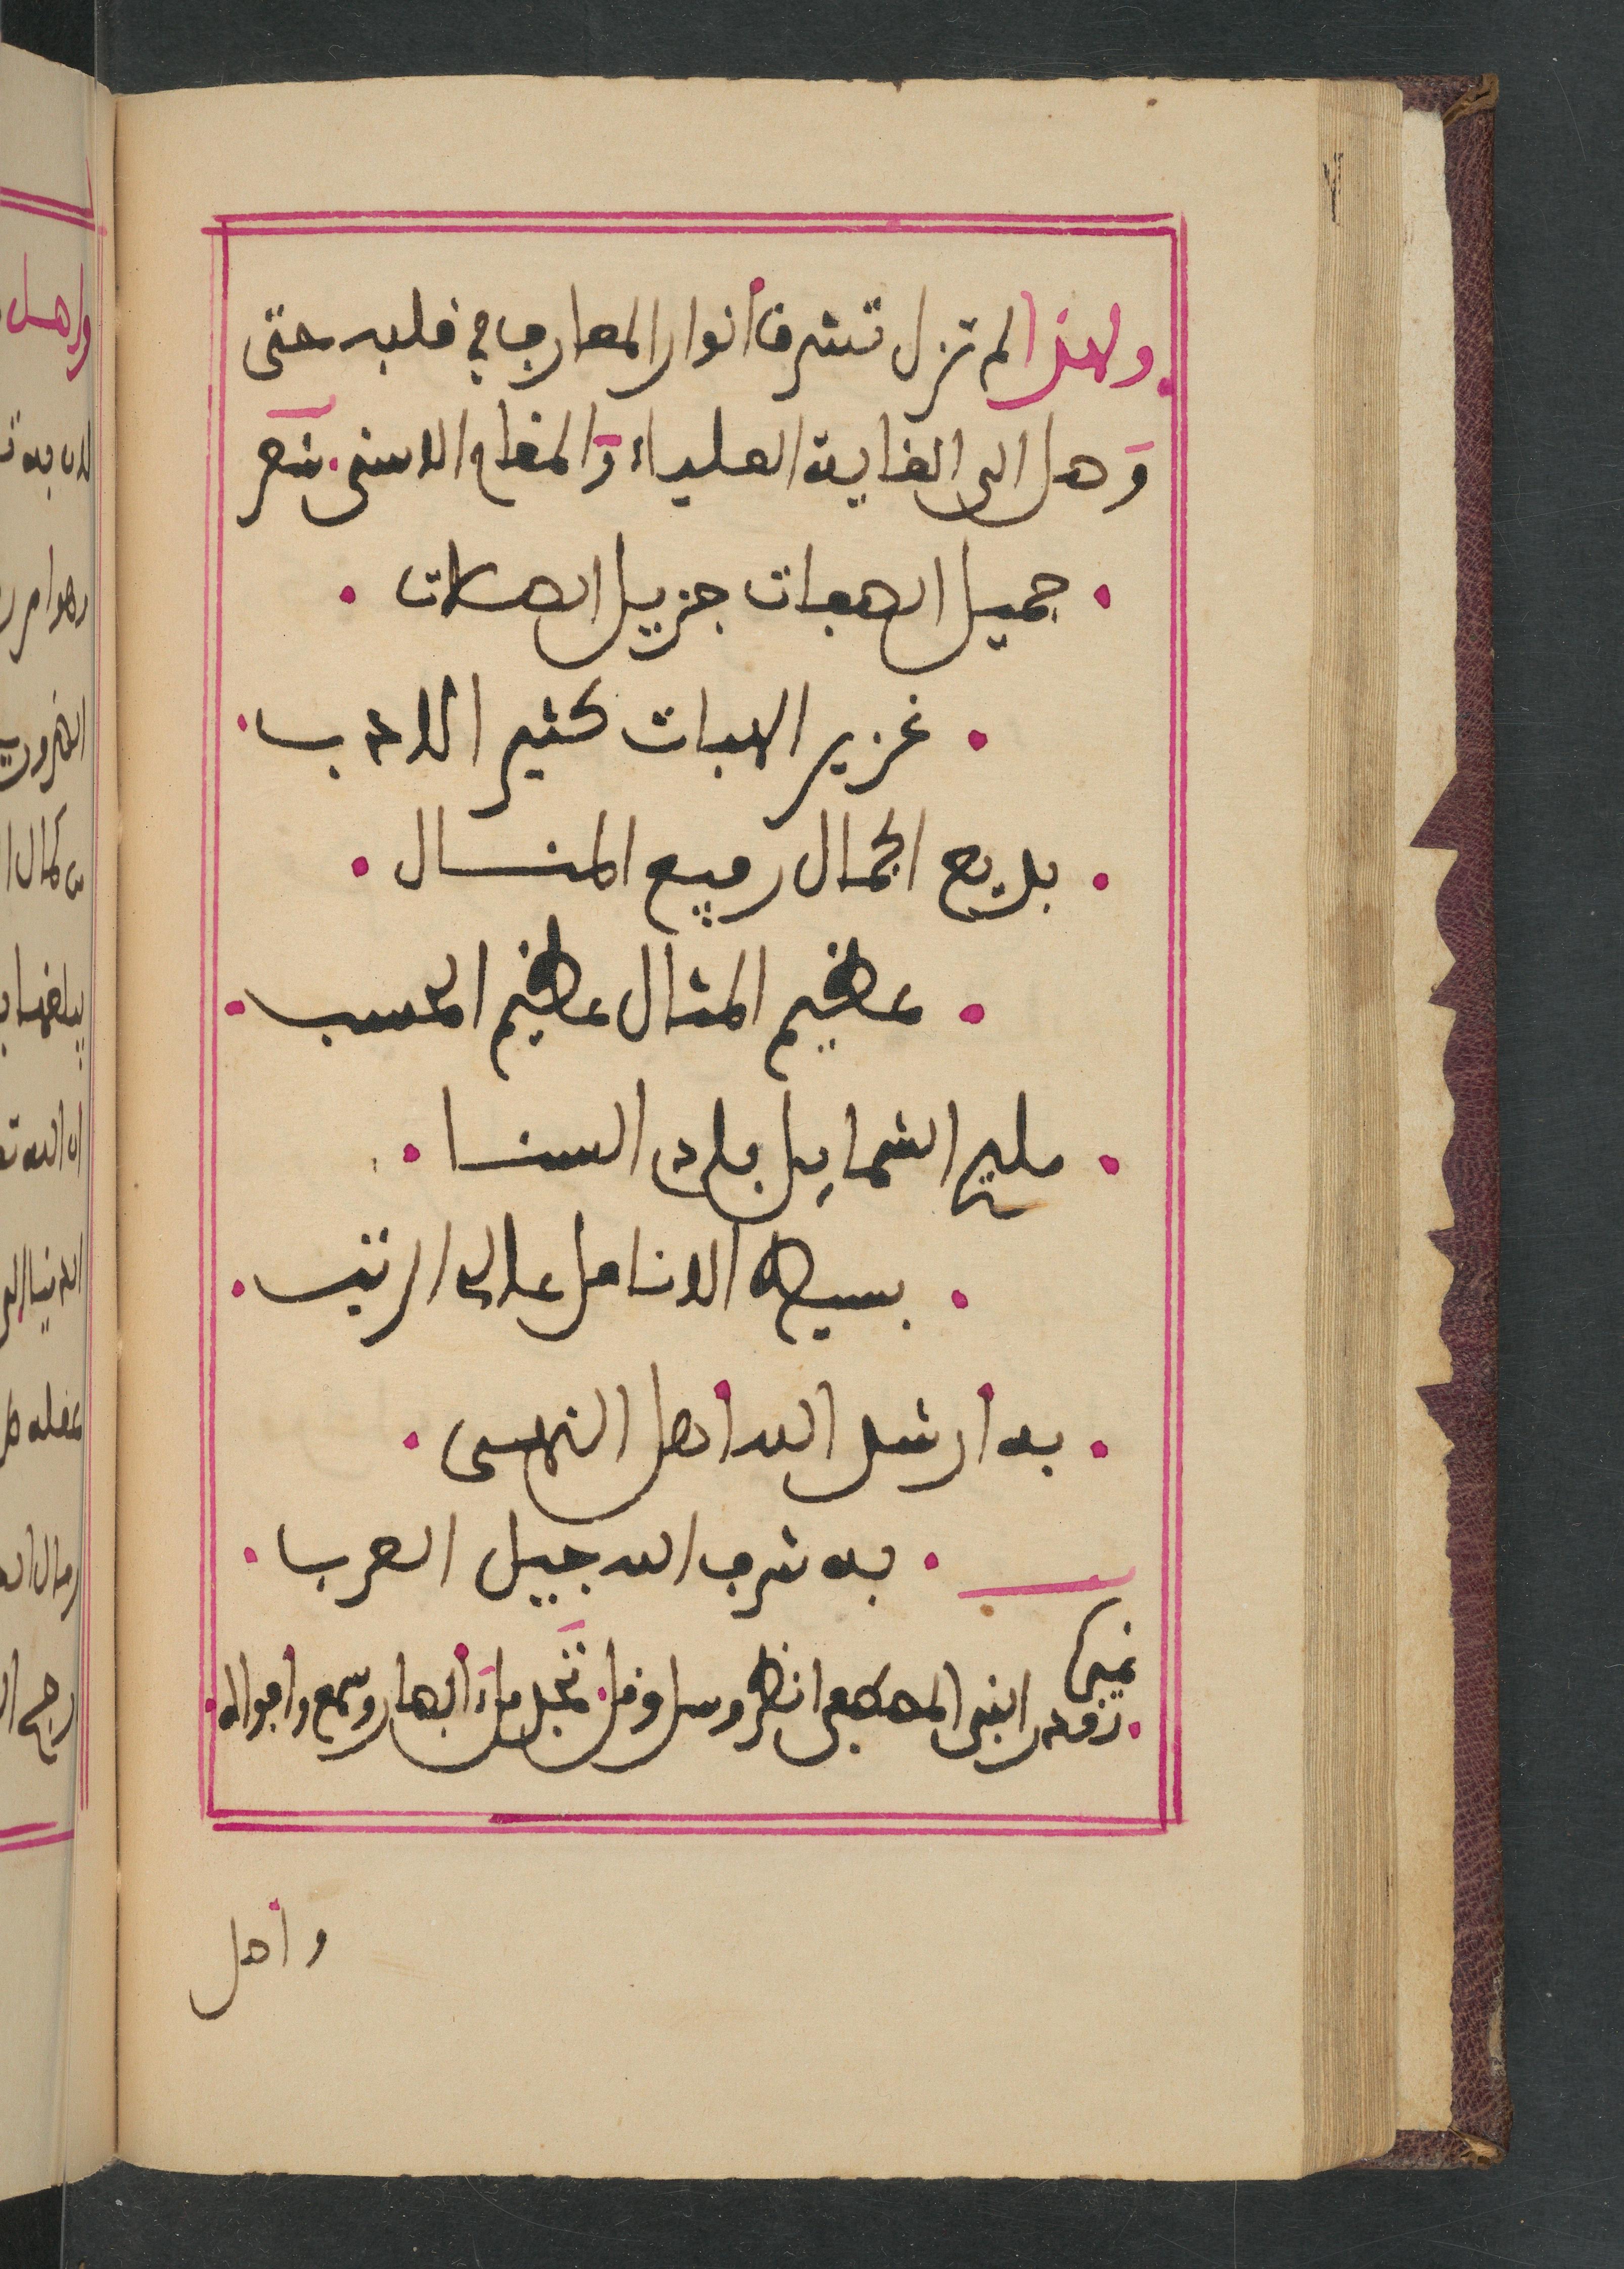 ولهذا لم تزل تشرق أنوار المعارف في قلبه حتى
وصل الى الغاية العلياء والمقام الاسنى. شعر
. جميل الهبات جزيل الصلات .
. غزير الهبات كثير الادب .
. بديع الجمال رفيع المنال .
. عظيم المثال عظيم الحسب .
. مليح الشمايل بادي السنا .
. بسيط الانامل عالي الرتب .
. به أرشد الله أهل النهى .
. به شرف الله جيل العرب .
غيره
. زوروا النبي المصطفى انظر وسل وقل. تجد ملء أبصار وسمع وأفواه .
وأهل